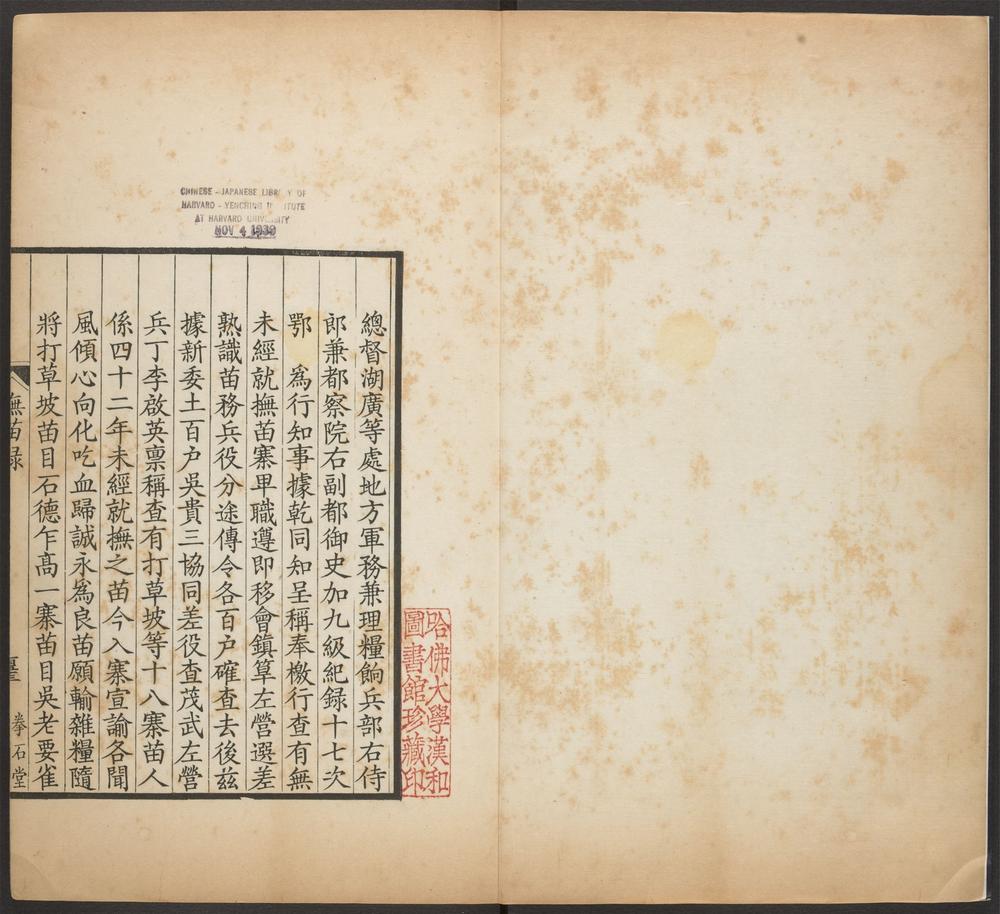 CHINESE - JAPANESE LIBR Y OF
HARVARD - YENCHING I ITUTE
AT HARVARD UNIVERSITY
NOV 4 1939
總督湖廣等處地方軍務兼理糧餉兵部右侍
郎兼都察院右副都御史加九級紀録十七次
鄂 爲行知事據乾同知呈稱奉檄行查有無
未經就撫苗寨卑職遵即移會鎮筸左營選差
熟識苗務兵役分途傳令各百户確查去後兹
據新委土百户吳貴三協同差役查茂武左營
兵丁李啟英禀稱查有打草坡等十八寨苗人
係四十二年未經就撫之苗今入寨宣諭各聞
風傾心向化吃血歸誠永爲良苗願輸雜糧隨
將打草坡苗目石德乍高一寨苗目吳老要雀
撫苗録
拳石堂
哈佛大學漢和
圖書館珍藏印